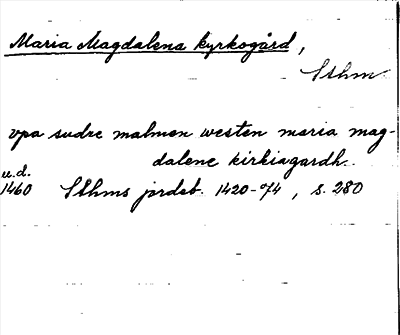 Maria Magdalena kyrkogård,
Sthm
vpa sudre malmen westen maria mag-
dalene kirkiagardh.
u.d.
1460 Sthms jordeb. 1420-74, s. 280